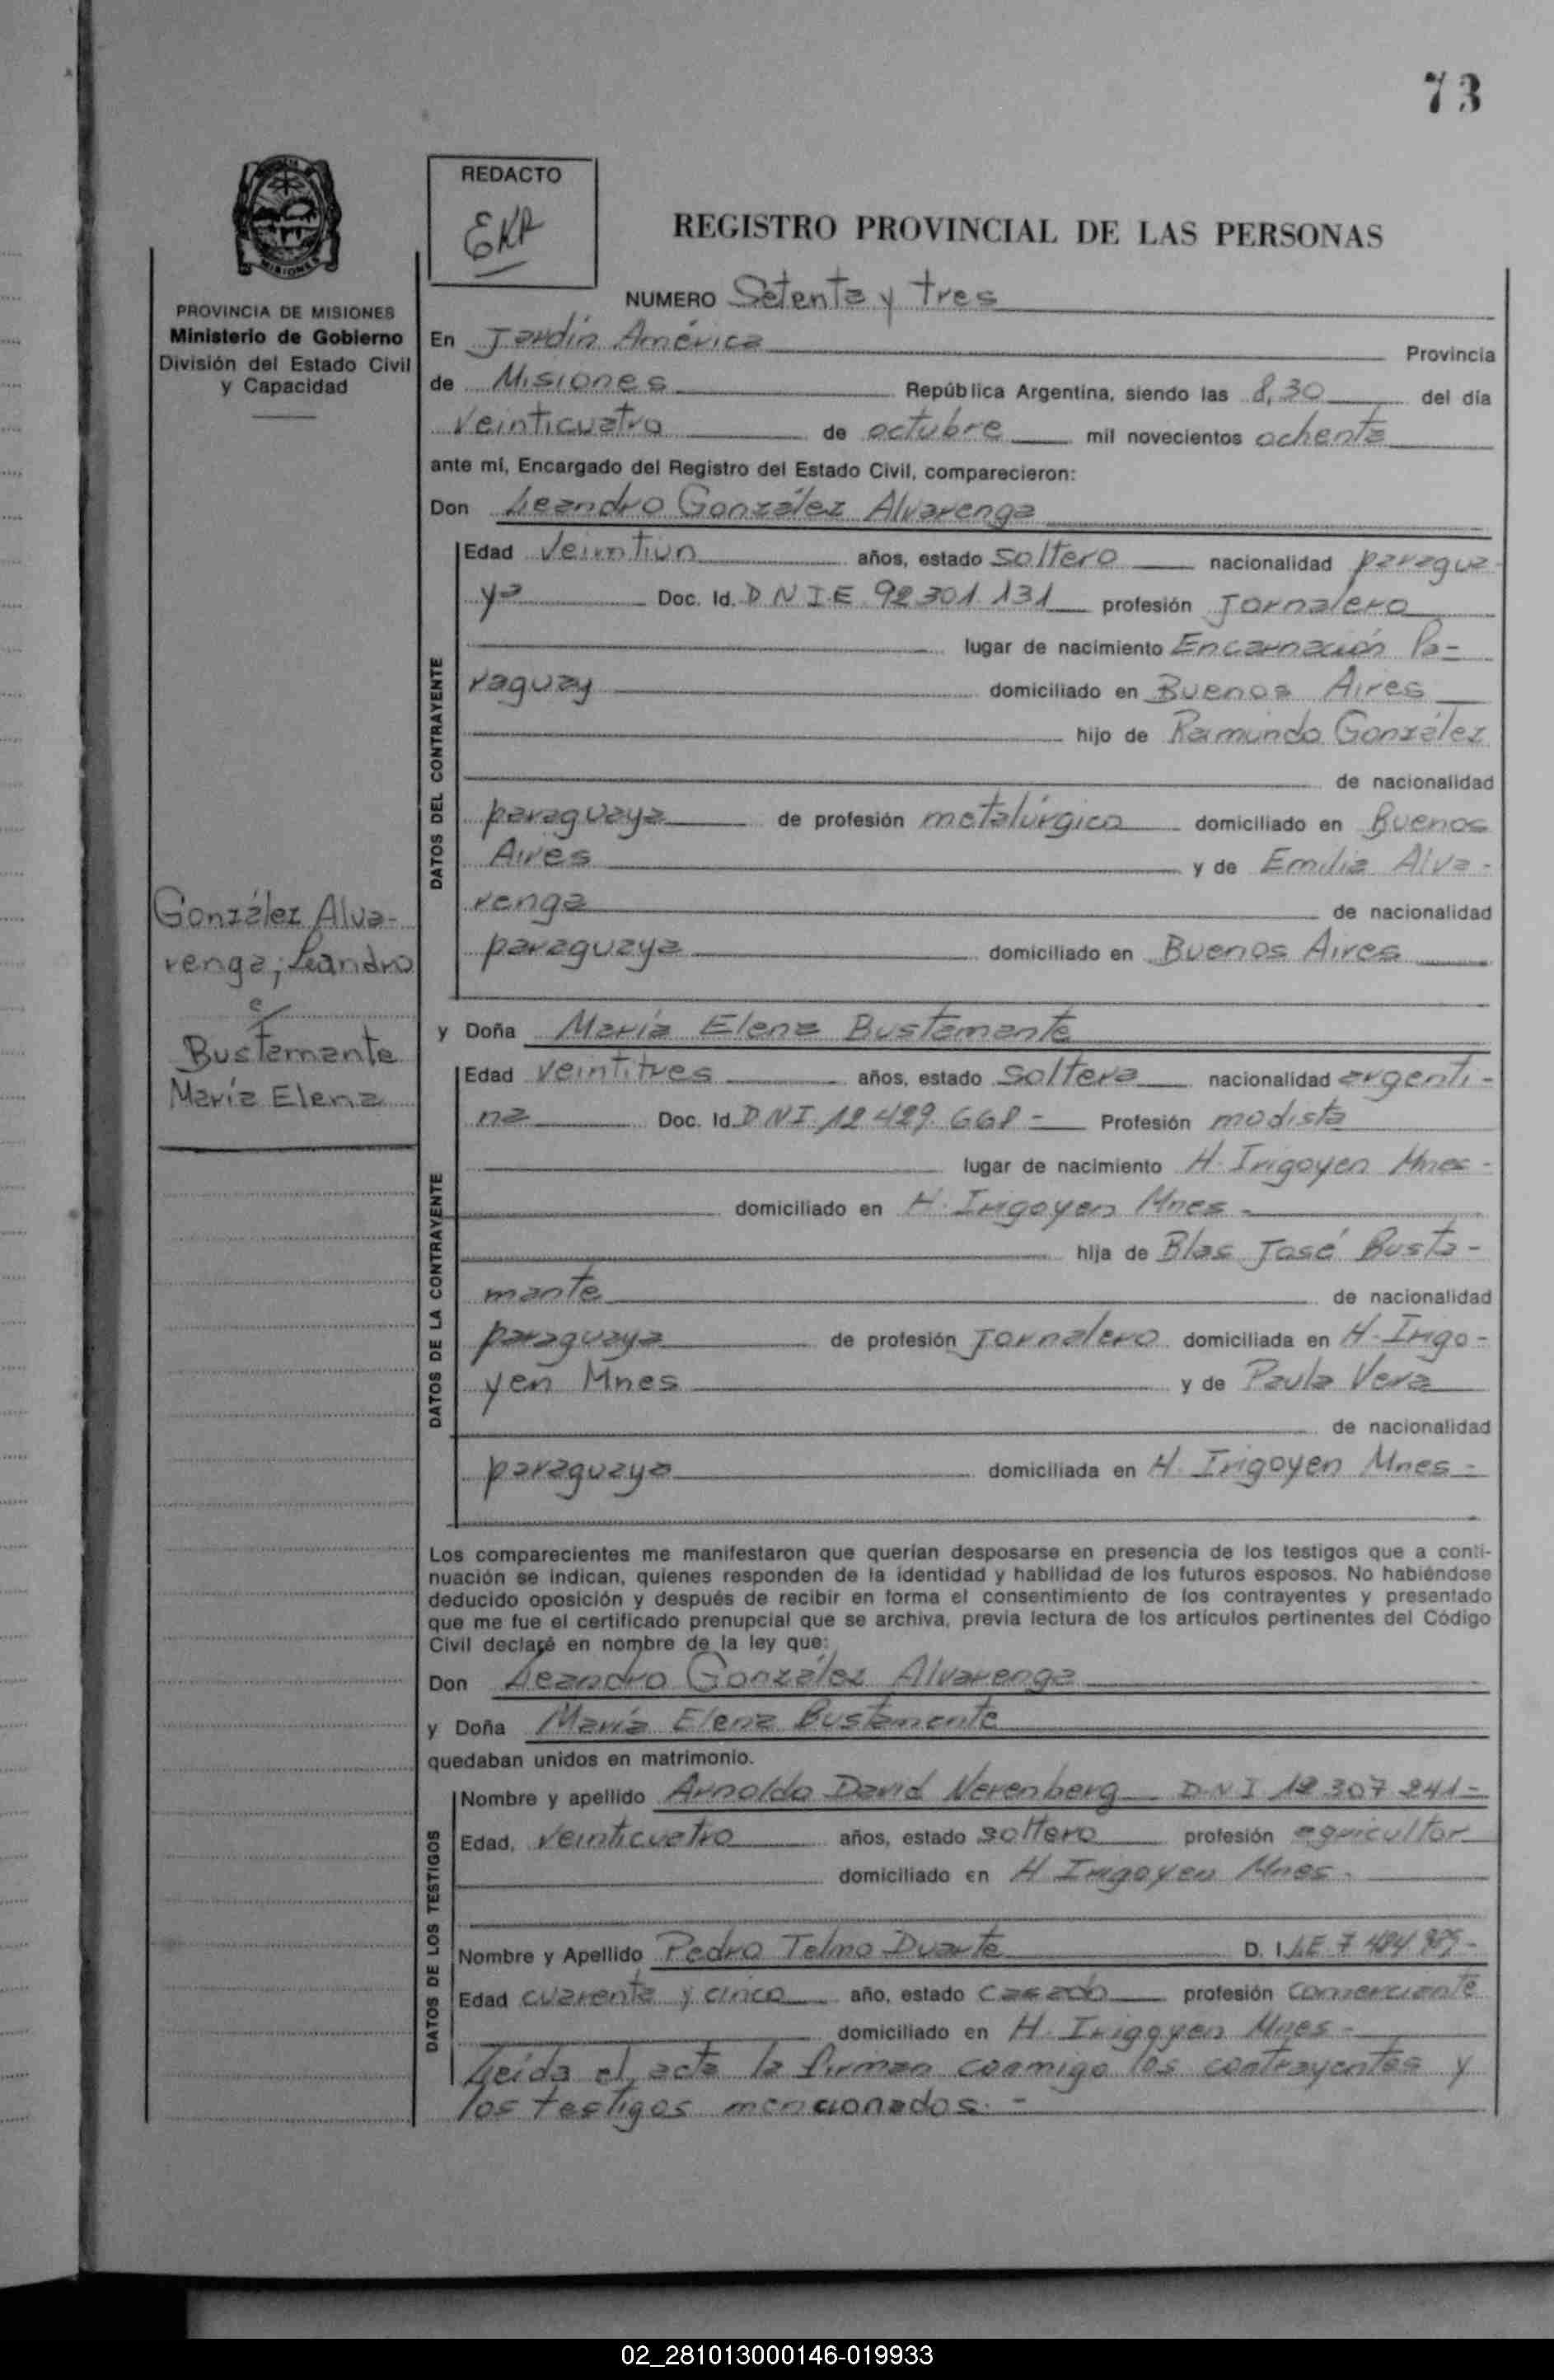 73
REDACTO
EKR
REGISTRO PROVINCIAL DE LAS PERSONAS
MISIONES
PROVINCIA DE MISIONES
Ministerio de Gobierno
División del Estado Civil
y Capacidad
NUMERO Setenta y tres
En Jardín América Provincia
de Misiones República Argentina, siendo las 8,30 del día
Veinticuatro de octubre mil novecientos ochenta
ante mí, Encargado del Registro del Estado Civil, comparecieron:
Don Leandro González Alvarenga
DATOS DEL CONTRAYENTE
Edad Veintiun años, estado soltero nacionalidad paragua-
ya Doc. Id. DNIE 92 301 131 profesión Jornalero
lugar de nacimiento Encarnación Pa-
raguay domiciliado en Buenos Aires
hijo de Raimundo González
de nacionalidad
paraguaya de profesión metalúrgico domiciliado en Buenos
Aires y de Emilia Alva-
renga de nacionalidad
paraguaya domiciliado en Buenos Aires
González Alva-
renga, Leandro
c/
Bustamante
María Elena
y Doña María Elena Bustamante
DATOS DE LA CONTRAYENTE
Edad Veintitres años, estado soltera nacionalidad argenti-
na Doc. Id. DNI 12 429. 668 - Profesión modista
lugar de nacimiento H. Irigoyen Mnes -
domiciliado en H. Irigoyen Mnes -
hija de Blas José Busta-
mante de nacionalidad
paraguaya de profesión Jornalero domiciliada en H. Irigo-
yen Mnes y de Paula Vera
de nacionalidad
paraguaya domiciliada en H. Irigoyen Mnes -
Los comparecientes me manifestaron que querían desposarse en presencia de los testigos que a conti-
nuación se indican, quienes responden de la identidad y habilidad de los futuros esposos. No habiéndose
deducido oposición y después de recibir en forma el consentimiento de los contrayentes y presentado
que me fue el certificado prenupcial que se archiva, previa lectura de los artículos pertinentes del Código
Civil declaré en nombre de la ley que:
Don Leandro González Alvarenga
y Doña María Elena Bustamante
quedaban unidos en matrimonio.
DATOS DE LOS TESTIGOS
Nombre y apellido Arnoldo David Nerenberg DNI 12 307 241 -
Edad, Veinticuatro años, estado soltero profesión agricultor
domiciliado en H Irigoyen Mnes -
Nombre y Apellido Pedro Telmo Duarte D. I. LE 7 484
Edad cuarenta y cinco año, estado casado profesión comerciante
domiciliado en H. Irigoyen Mnes -
Leída el acta la firman conmigo los contrayentes y
los testigos mencionados. -
02_281013000146-019933